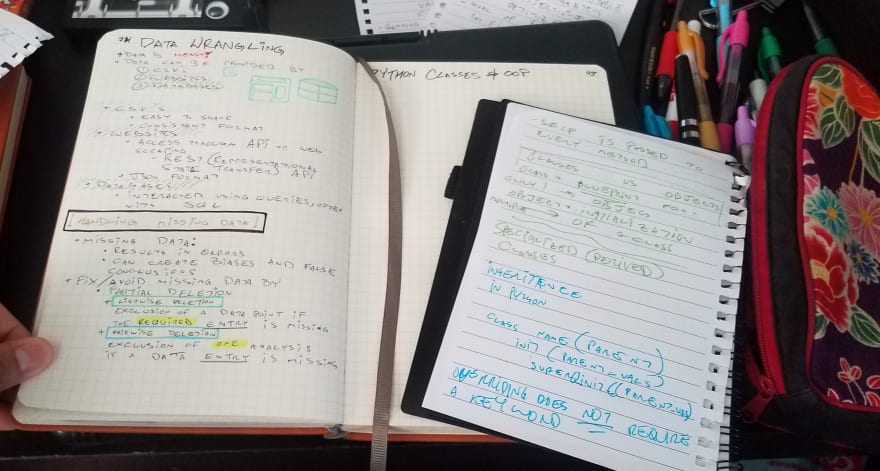 DATA WRANGLING
DATA IS MESSY!
DATA CAN BE PROVIDED BY
① CSV'S
② WEBSITES
③ DATABASES
CSV'S
EASY TO SHARE
CONSISTENT FORMAT
WEBSITES
ACCESS THROUGH API OR WEB
SCRAPING
REST (REPRESENTATIONAL
STATE TRANSFER) API
JSON FORMAT
DATABASES
INTERACTED USING QUERIES, OFTEN
WITH SQL
HANDLING MISSING DATA
MISSING DATA:
RESULTS IN ERRORS
CAN CREATE BIASES AND FALSE
CONCLUSIONS
FIX/AVOID MISSING DATA BY
PARTIAL DELETION
LISTWISE DELETION
EXCLUSION OF A DATA POINT IF
THE REQUIRED ENTRY IS MISSING
PAIRWISE DELETION
EXCLUSION OF ONE ANALYSIS
IF A DATA ENTRY IS MISSING
PYTHON CLASSES & OOP
SELF IS PASSED TO
EVERY METHOD
CLASSES VS OBJECTS
CLASS = BLUEPRINT FOR..
ONLY 1 → OBJECT
OBJECT = INITIALIZATION
OF A CLASS
SPECIALIZED (DERIVED)
CLASSES
INHERITENCE
IN PYTHON
CLASS NAME (PARENT)
INIT (PARENT_VALS)
SUPER().INIT((PARENT_VALS)
OVERRIDING DOES NOT REQUIRE
A KEYWORD